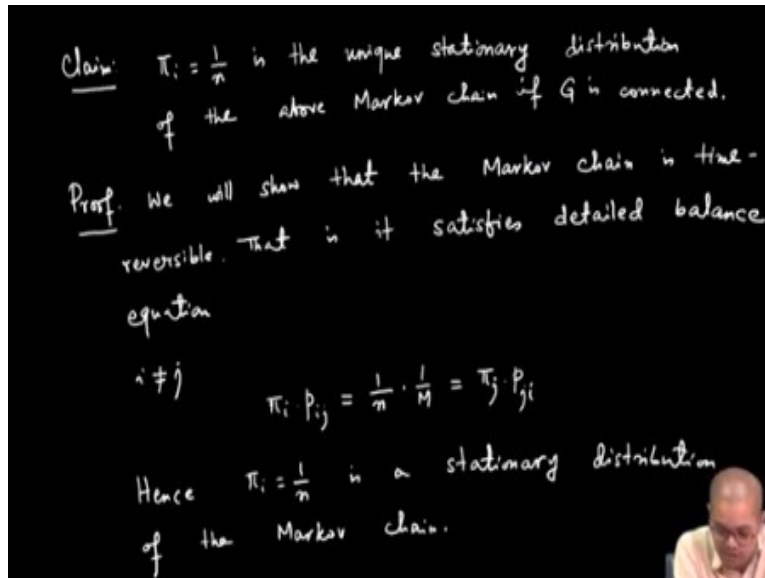 Claim: π_i = 1/n is the unique stationary distribution
of the above Markov chain if G is connected.
Proof. We will show that the Markov chain is time-
reversible. That is it satisfies detailed balance
equation
i ≠ j
π_i · P_ij = 1/n · 1/M = π_j · P_ji
Hence π_i = 1/n is a stationary distribution
of the Markov chain.